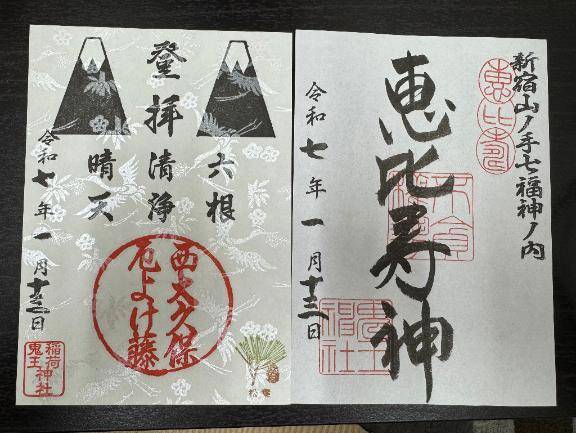 新宿山ノ手七福神ノ内
恵比寿
恵比寿神
令和七年一月十三日
登拝
六根
清浄
晴天
令和七年一月十三日
西大久保
厄よけ藤
稲荷神社
鬼王
松